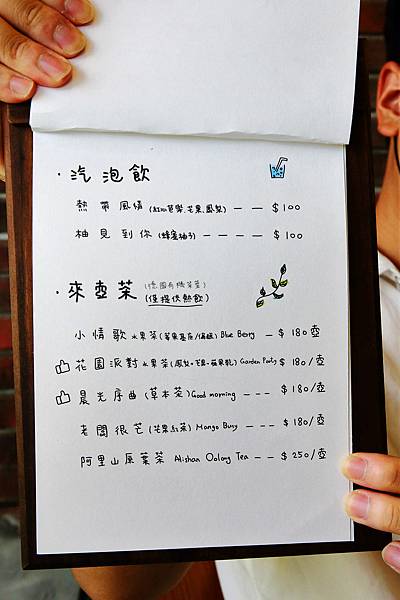 · 汽泡飲
熱帶風情(紅心芭樂.芒果.鳳梨) — — $100
柚見到你(蜂蜜柚子) — — — $100
· 來壺茶 (德國有機茶葉)
(僅提供熱飲)
小情歌 水果茶 Blue Berry — $180壺
花園派對 水果茶(鳳梨+芒果+蘋果乾) Garden Party $180/壺
晨光序曲(草本茶) Good morning --- $180/壺
老闆很芒(芒果紅茶) Mango Busy --- $180/壺
阿里山原葉茶 Alishan Oolong Tea -- $250/壺